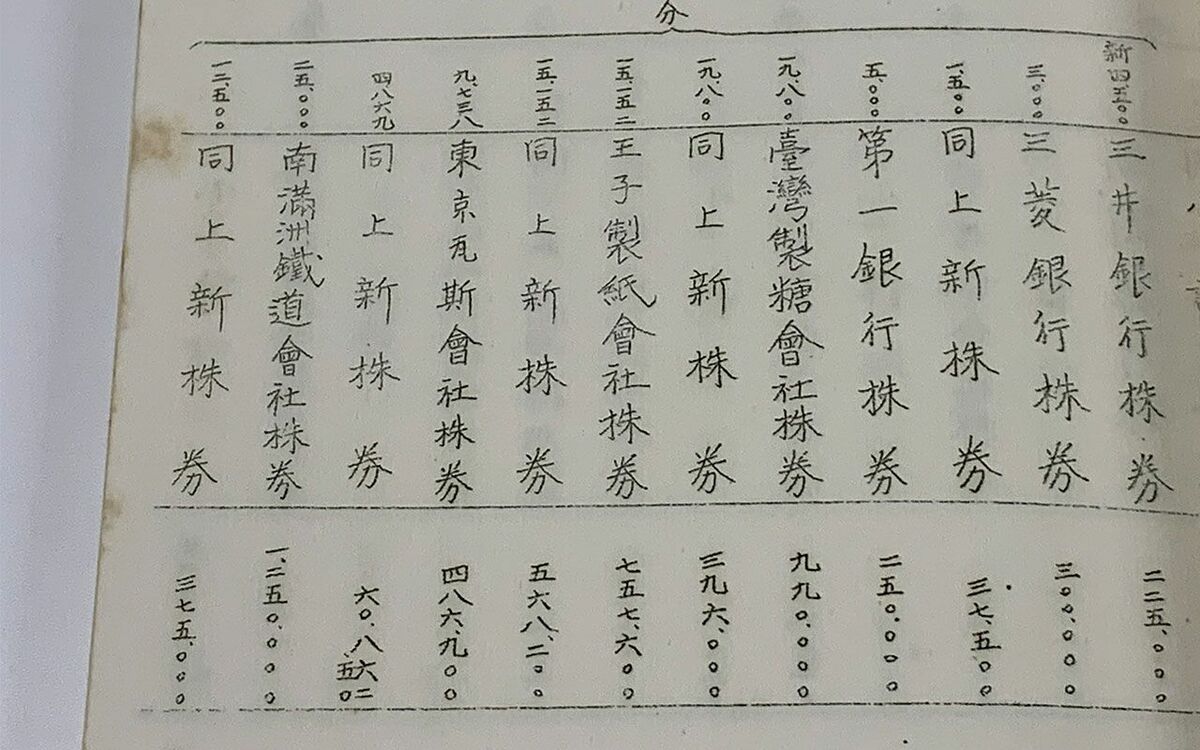 分
新四、五〇〇 三井銀行株券 二二五、〇〇〇
三、〇〇〇 三菱銀行株券 三〇〇、〇〇〇
一、五〇〇 同上新株券 三七、五〇〇
五、〇〇〇 第一銀行株券 二五〇、〇〇〇
一九、八〇〇 臺灣製糖會社株券 九九〇、〇〇〇
一九、八〇〇 同上新株券 三九六、〇〇〇
一五、一五二 王子製紙會社株券 七五七、六〇〇
一五、一五二 同上新株券 五六八、二〇〇
九、七三八 東京瓦斯會社株券 四八六、九〇〇
四八六九 同上新株券 六〇、八六二 五〇
二五、〇〇〇 南滿洲鐵道會社株券 一、二五〇、〇〇〇
一二、五〇〇 同上新株券 三七五、〇〇〇